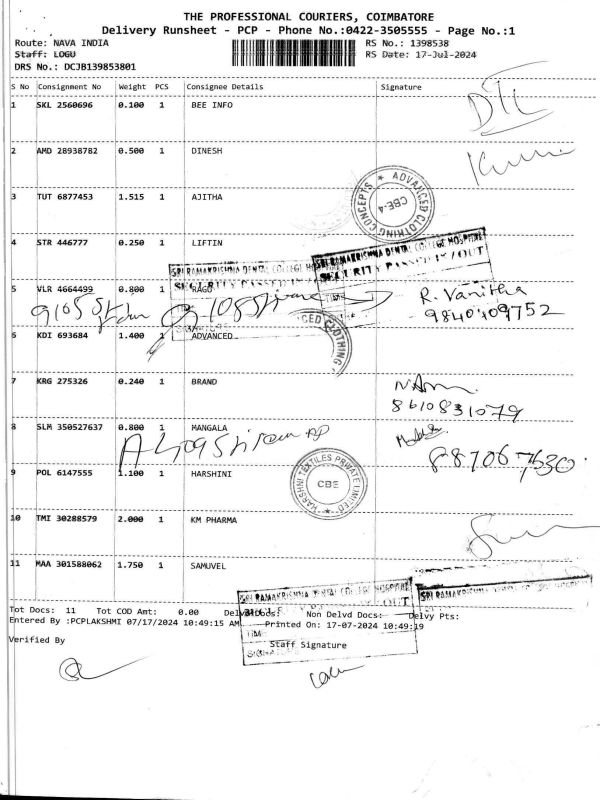 THE PROFESSIONAL COURIERS, COIMBATORE
Delivery Runsheet - PCP - Phone No.:0422-3505555 - Page No.:1
Route: NAVA INDIA RS No.: 1398538
Staff: LOGU RS Date: 17-Jul-2024
DRS No.: DCJB139853801
S No Consignment No Weight PCS Consignee Details Signature
1 SKL 2560696 0.100 1 BEE INFO
2 AMD 28938782 0.500 1 DINESH
3 TUT 6877453 1.515 1 AJITHA
ADVANCED CLOTHING CONCEPTS
CBE-4
4 STR 446777 0.250 1 LIFTIN
SRI RAMAKRISHNA DENTAL COLLEGE HOSPITAL
5 VLR 4664499 0.800 1 RAGU
R. Vanitha
9840409752
6 KDI 693684 1.400 1 ADVANCED
CED CLOTHING
7 KRG 275326 0.240 1 BRAND
8610831079
8 SLM 350527637 0.800 1 MANGALA
9 POL 6147555 1.100 1 HARSHINI
HARSHNI TEXTILES PRIVATE LIMITED
CBE
10 TMI 30288579 2.000 1 KM PHARMA
11 MAA 301588062 1.750 1 SAMUVEL
SRI RAMAKRISHNA DENTAL COLLEGE HOSPITAL
SRI RAMAKRISHNA DENTAL COLLEGE HOSPITAL
Tot Docs: 11 Tot COD Amt: 0.00 Delvd Docs: Non Delvd Docs: Delvy Pts:
Entered By :PCPLAKSHMI 07/17/2024 10:49:15 AM Printed On: 17-07-2024 10:49:19
Verified By Staff Signature